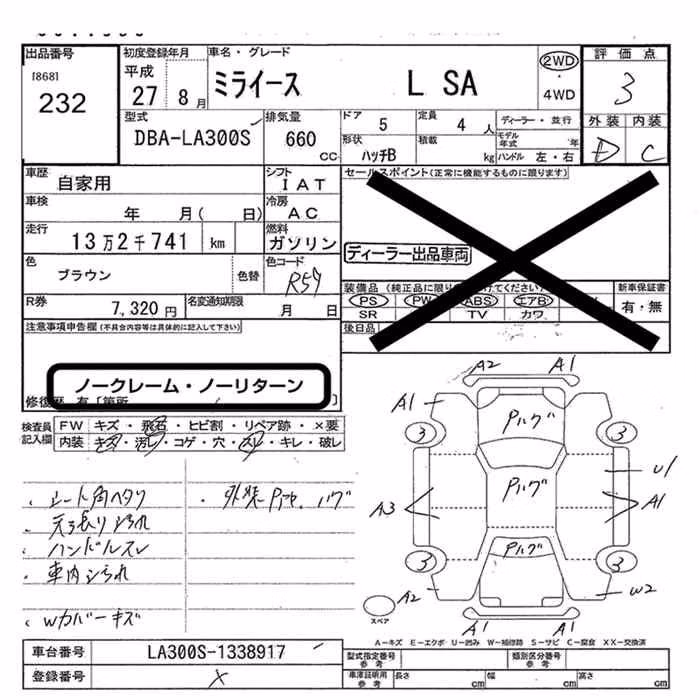 出品番号 初度登録年月 車名・グレード 評価点
[868]
232
平成 27 8月 ミライース L SA 2WD ・ 4WD 3
型式 排気量 ドア 5 定員 4人 ディーラー・並行 外装 内装
DBA-LA300S 660 CC 形状 ハッチB 積載 kg モデル年式 年 ハンドル 左・右 D C
車歴 自家用 シフト IAT セールスポイント(正常に機能するものに限ります)
車検 年 月( 日) 冷房 AC
走行 13万2千741 km 燃料 ガソリン ディーラー出品車両
色 ブラウン 色替 色コード R59
装備品(純正品に限り けてください) 新車保証書
PS PW ABS エアB 有・無
SR TV カワ
R券 7,320円 名変通知期限 月 日 後日品
注意事項申告欄(不具合内容等は具体的に記入して下さい)
ノークレーム・ノーリターン
修復歴 有[箇所 ]
検査員記入欄 FW キズ・飛石・ヒビ割・リペア跡・×要
内装 キズ・汚レ・コゲ・穴・スレ・キレ・破レ
・シート角ヘタリ ・外装
・天張り
・ハンドルスレ
・車内
・Wカバーキズ
A2 A1
A1 Pハゲ
3 3
Pハゲ U1
A3 A1
Pハゲ
3 3
A2 W2
A1 A1
スペア
A-キズ E-エクボ U-凹み W-補修跡 S-サビ C-腐食 XX-交換済
車台番号 LA300S-1338917 型式指定番号 参考 類別区分番号 参考
登録番号 × 車庫証明用 参考 長さ cm 幅 cm 高さ cm